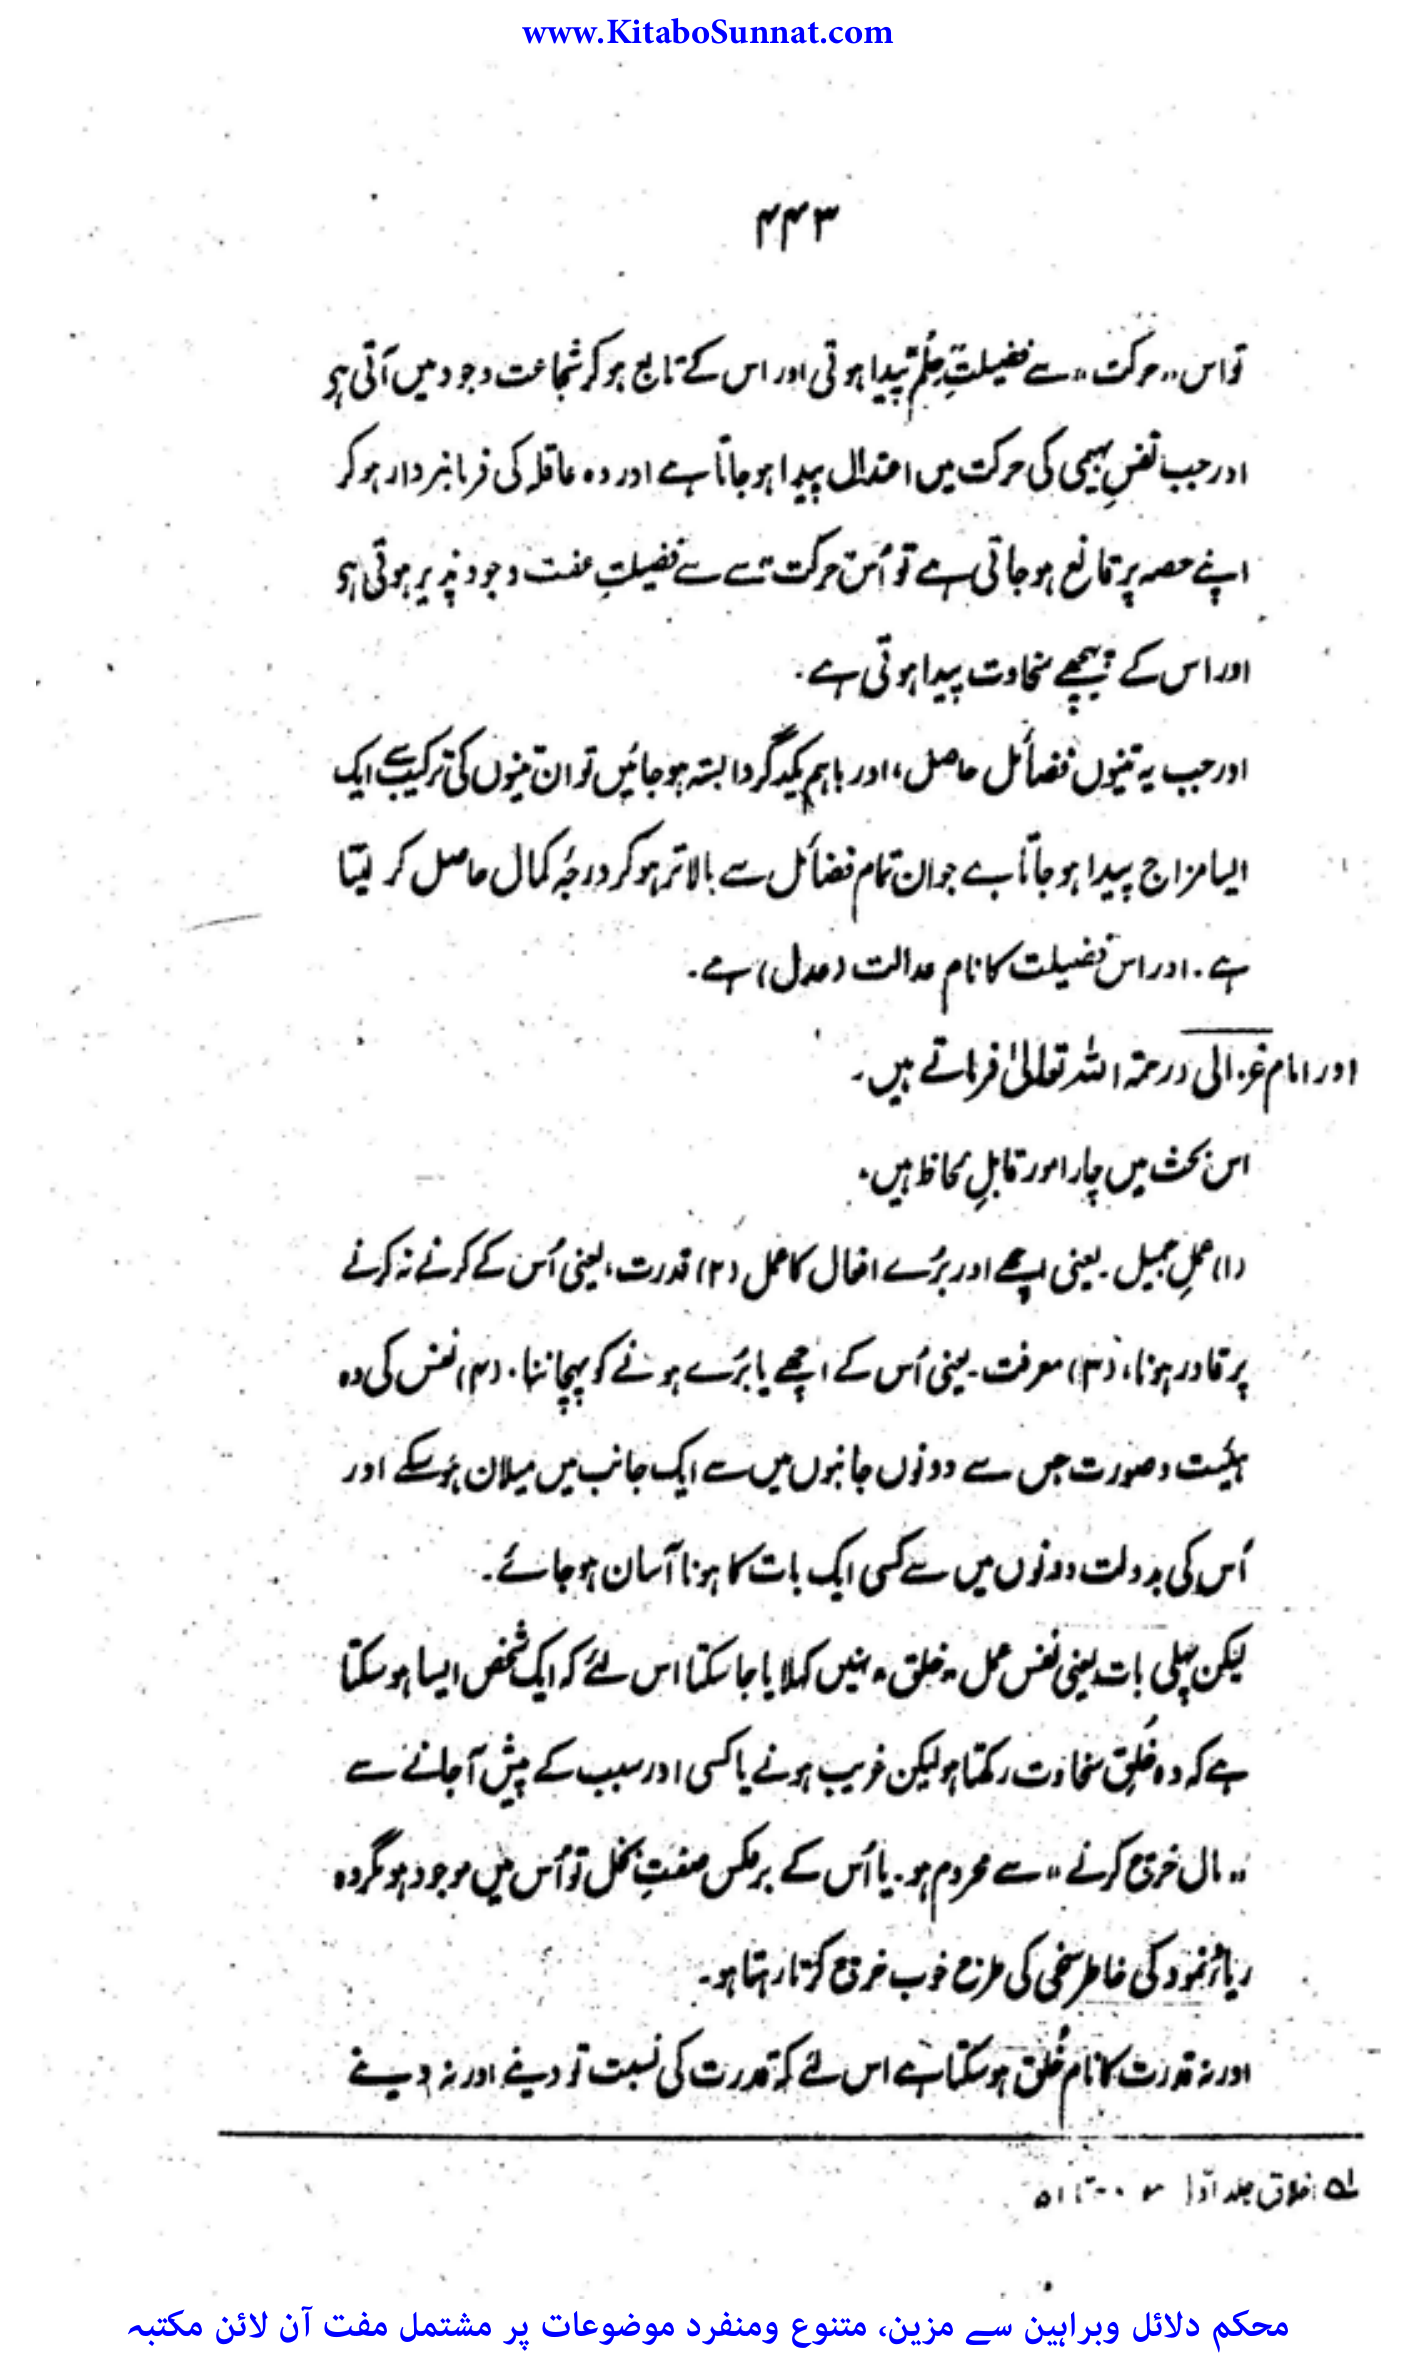 www.KitaboSunnat.com
۴۴۳
تو اس "حرکت" سے فضیلتِ حِلم پیدا ہوتی اور اس کے تابع ہو کر شجاعت وجود میں آتی ہی
اور جب نفسِ بہیمی کی حرکت میں اعتدال پیدا ہو جاتا ہے اور وہ عاقلہ کی فرمانبردار ہو کر
اپنے حصہ پر قانع ہو جاتی ہے تو اُس حرکت سے فضیلتِ عفت وجود پذیر ہوتی ہی
اور اس کے پیچھے سخاوت پیدا ہوتی ہے۔
اور جب یہ تینوں فضائل حاصل، اور باہم یکدگر وابستہ ہو جائیں تو ان تینوں کی ترکیب سے ایک
ایسا مزاج پیدا ہو جاتا ہے جو ان تمام فضائل سے بالاتر ہو کر درجۂ کمال حاصل کر لیتا
ہے۔ اور اس فضیلت کا نام عدالت (عدل) ہے۔
اور امام غزالی رحمۃ اللہ تعالیٰ فرماتے ہیں۔
اس بحث میں چار امور قابلِ لحاظ ہیں۔
(۱) عملِ جمیل۔ یعنی اچھے اور بُرے افعال کا عمل (۲) قدرت، یعنی اُس کے کرنے نہ کرنے
پر قادر ہونا، (۳) معرفت۔ یعنی اُس کے اچھے یا بُرے ہونے کو پہچاننا۔ (۴) نفس کی وہ
ہیئت و صورت جس سے دونوں جانبوں میں سے ایک جانب میں میلان ہو سکے اور
اُس کی بدولت دونوں میں سے کسی ایک بات کا ہونا آسان ہو جائے۔
لیکن پہلی بات یعنی نفس عمل "خلق" نہیں کہلایا جا سکتا اس لئے کہ ایک شخص ایسا ہو سکتا
ہے کہ وہ خُلقِ سخاوت رکھتا ہو لیکن غریب ہونے یا کسی اور سبب کے پیش آ جانے سے
"مال خرچ کرنے" سے محروم ہو۔ یا اُس کے برعکس صفتِ بخل تو اُس میں موجود ہو مگر وہ
ریاؤ نمود کی خاطر سخی کی طرح خوب خرچ کرتا رہتا ہو۔
اور نہ قدرت کا نام خُلق ہو سکتا ہے اس لئے کہ قدرت کی نسبت تو دینے اور نہ دینے
لہ اخلاق جلد اول تا ۵۱
محکم دلائل وبراہین سے مزین، متنوع ومنفرد موضوعات پر مشتمل مفت آن لائن مکتبہ